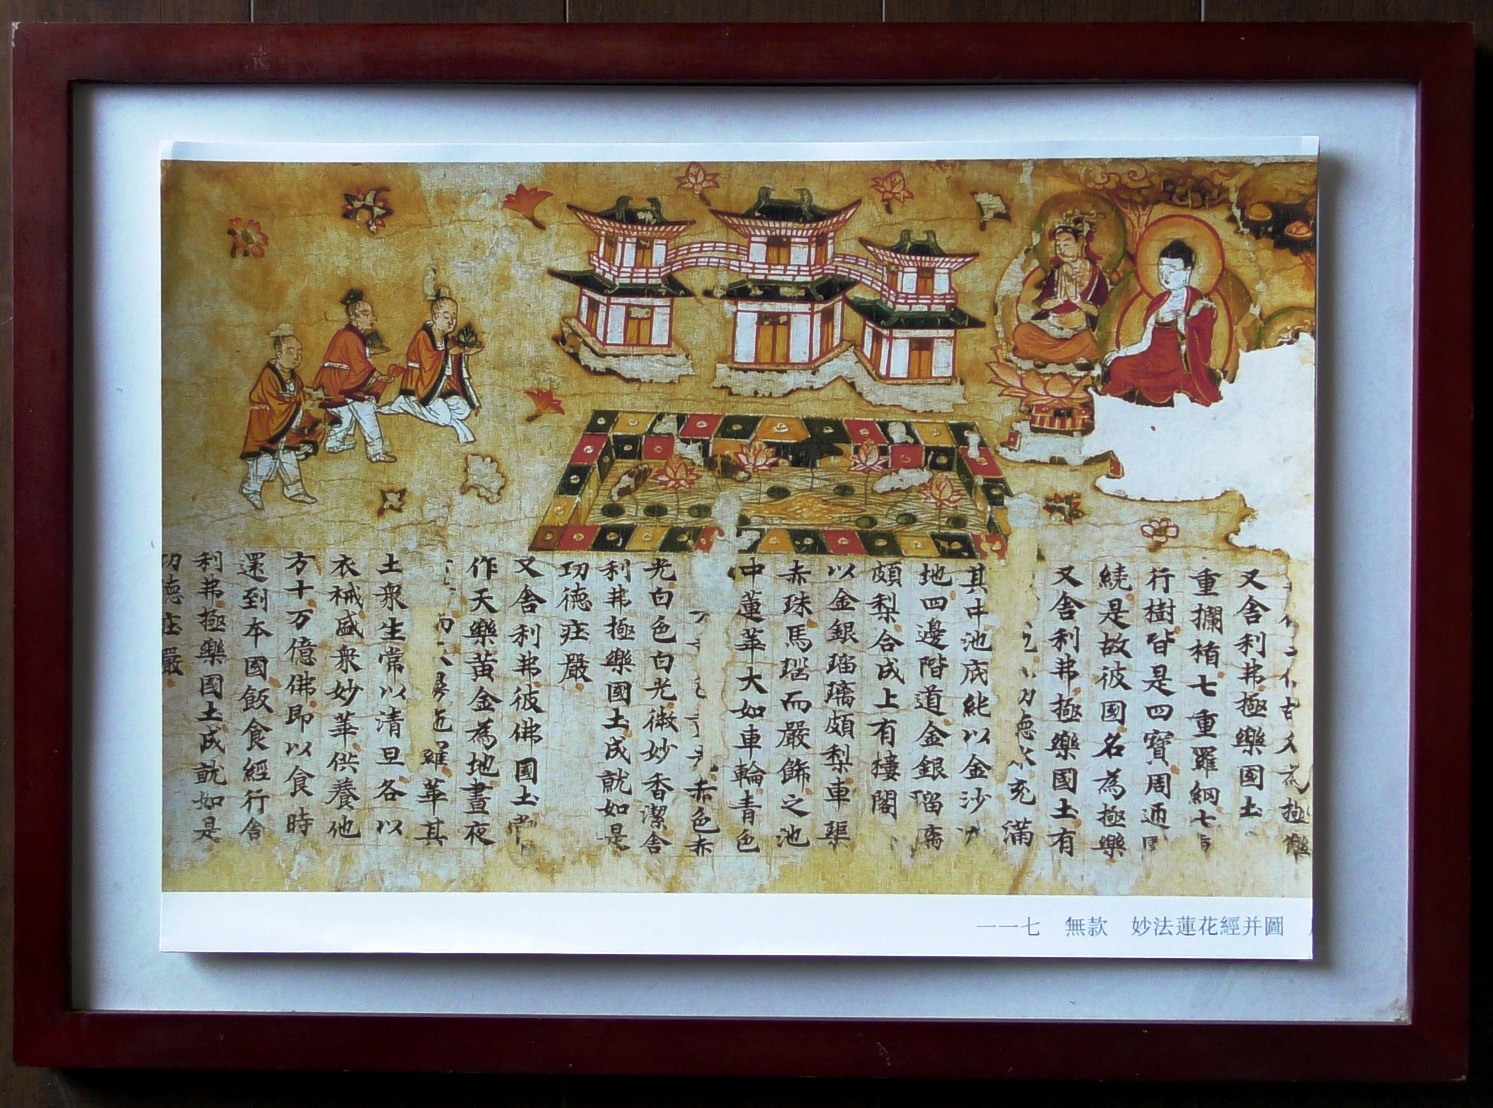 又舍利弗極樂國土
重攔楯七重羅網七
行樹皆是四寶周迊
繞是故彼國名為極樂
又舍利弗極樂國土有
充滿
其中池底純以金沙
地四邊階道金銀瑠璃
頗梨合成上有樓閣
以金銀瑠璃頗梨車磲
赤珠馬瑙而嚴飾之池
中蓮華大如車輪青色
赤色赤
光白色白光微妙香潔舍
利弗極樂國土成就如是
功德莊嚴
又舍利弗彼佛國土常
作天樂黃金為地晝夜
羅華其
土衆生常以清旦各以
衣裓盛衆妙華供養他
方十万億佛即以食時
還到本國飯食經行舍
利弗極樂國土成就如是
功德莊嚴
一一七　無款　妙法蓮花經并圖